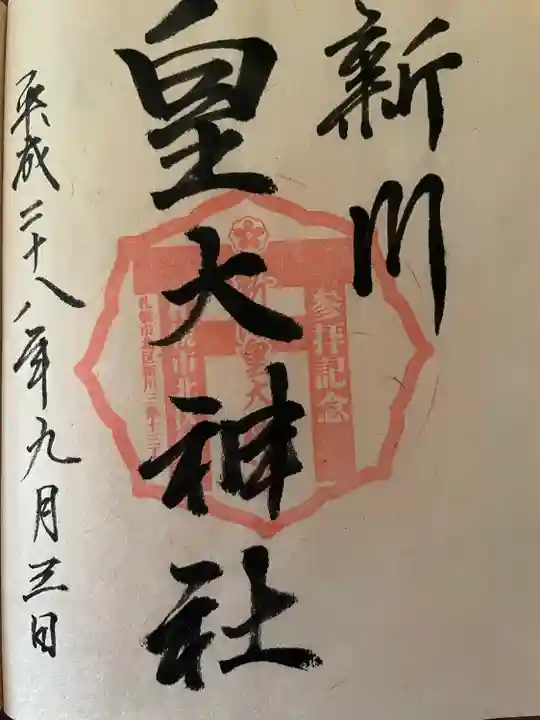 新川
皇大神社
平成二十八年九月三日
参拝記念
札幌市北区新川三条十三丁